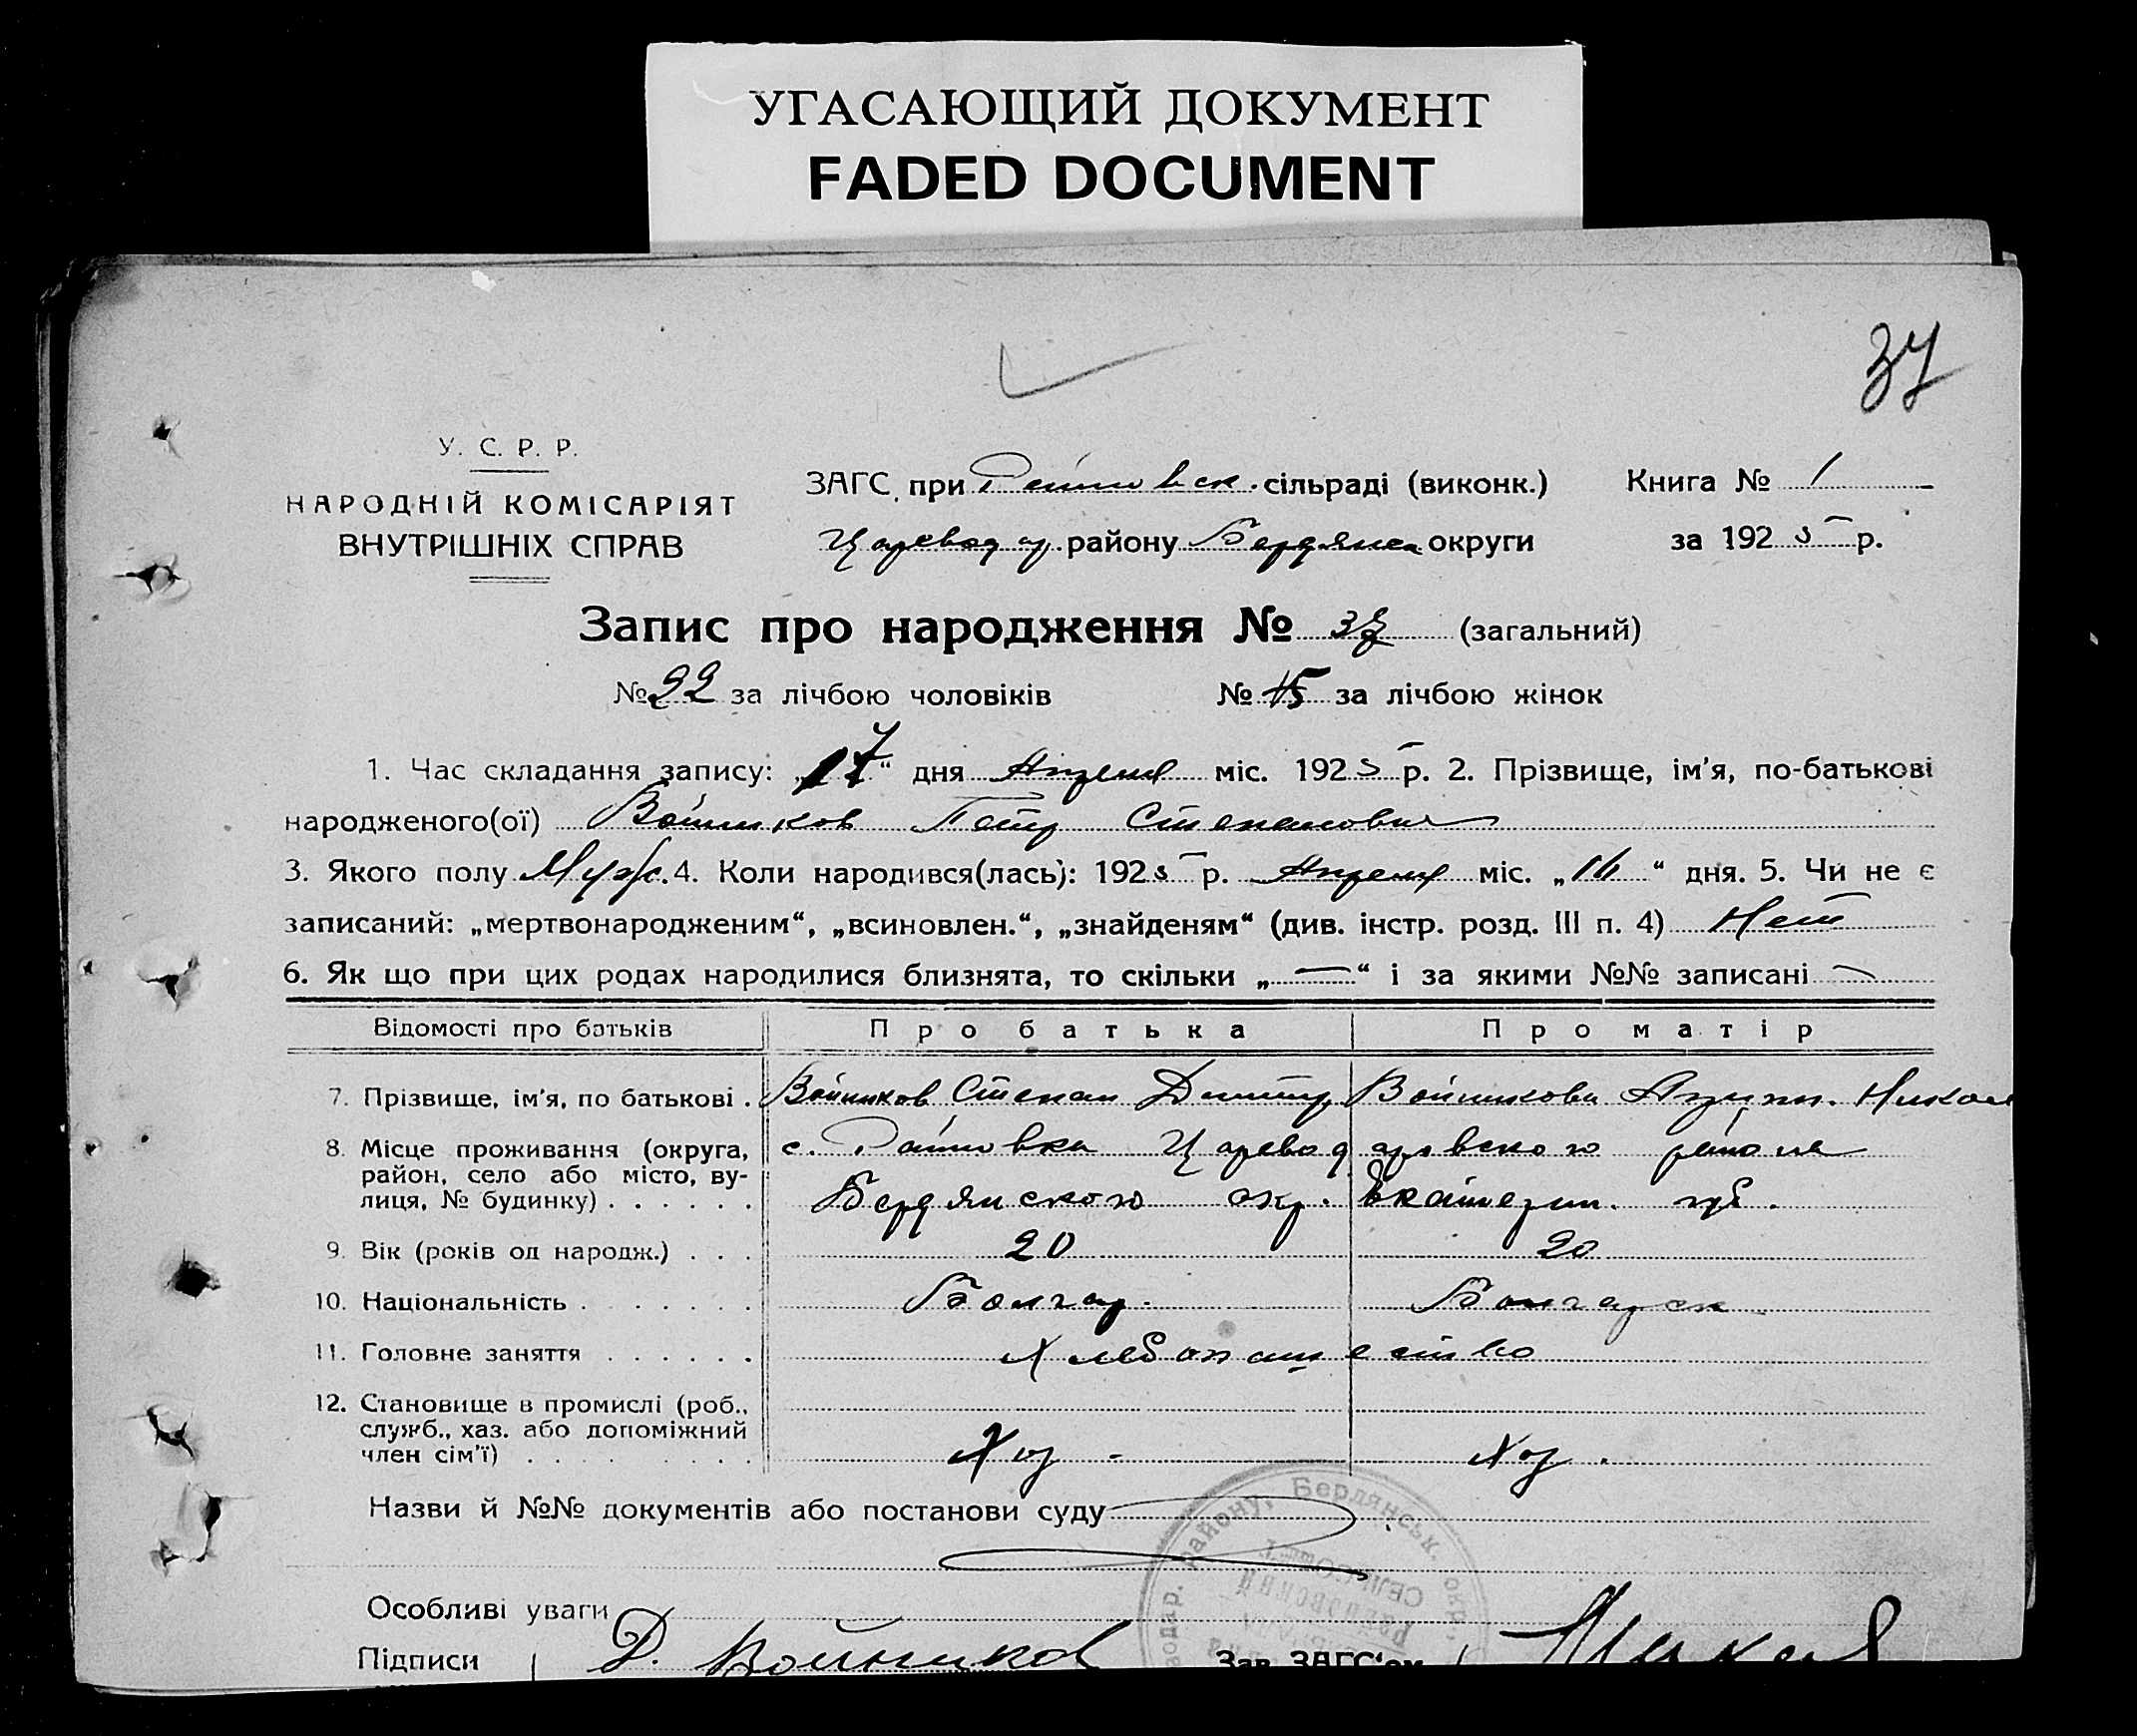 УГАСАЮЩИЙ ДОКУМЕНТ
FADED DOCUMENT
37
У. С. Р. Р.
НАРОДНІЙ КОМІСАРІЯТ
ВНУТРІШНІХ СПРАВ
ЗАГС, при Райновск. сільраді (виконк.) Книга № 1
Царевод ар. району Бердянск округи за 1925 р.
Запис про народження № 37 (загальний)
№ 22 за лічбою чоловіків № 15 за лічбою жінок
1. Час складання запису: „17“ дня Апреля міс. 1925 р. 2. Прізвище, ім’я, по-батькові
народженого(ої) Войников Петр Степанович
3. Якого полу Муж. 4. Коли народився(лась): 1925 р. Апреля міс. „16“ дня. 5. Чи не є
записаний: „мертвонародженим“, „всиновлен.“, „знайденям“ (див. інстр. розд. III п. 4) Нет
6. Як що при цих родах народилися близнята, то скільки „—“ і за якими №№ записані —
Відомості про батьків Про батька Про матір
7. Прізвище, ім’я, по батькові . Войников Степан Дмитр. Войникова Никол
8. Місце проживання (округа, с. Райновка Цареводаровского района
район, село або місто, ву-
лиця, № будинку) . . . . . . Бердянского окр. Екатерин. губ.
9. Вік (років од народж.) . . . 20 20
10. Національність . . . . . . . Болгар. Болгарск
11. Головне заняття . . . . . . Хлебопашество
12. Становище в промислі (роб.,
служб., хаз. або допоміжний
член сім’ї) . . . . . . . . . Хоз. Хоз.
Назви й №№ документів або постанови суду
району, Бердянськ. окр.
Особливі уваги
Підписи Д. Войников Зав. ЗАГС‘ом